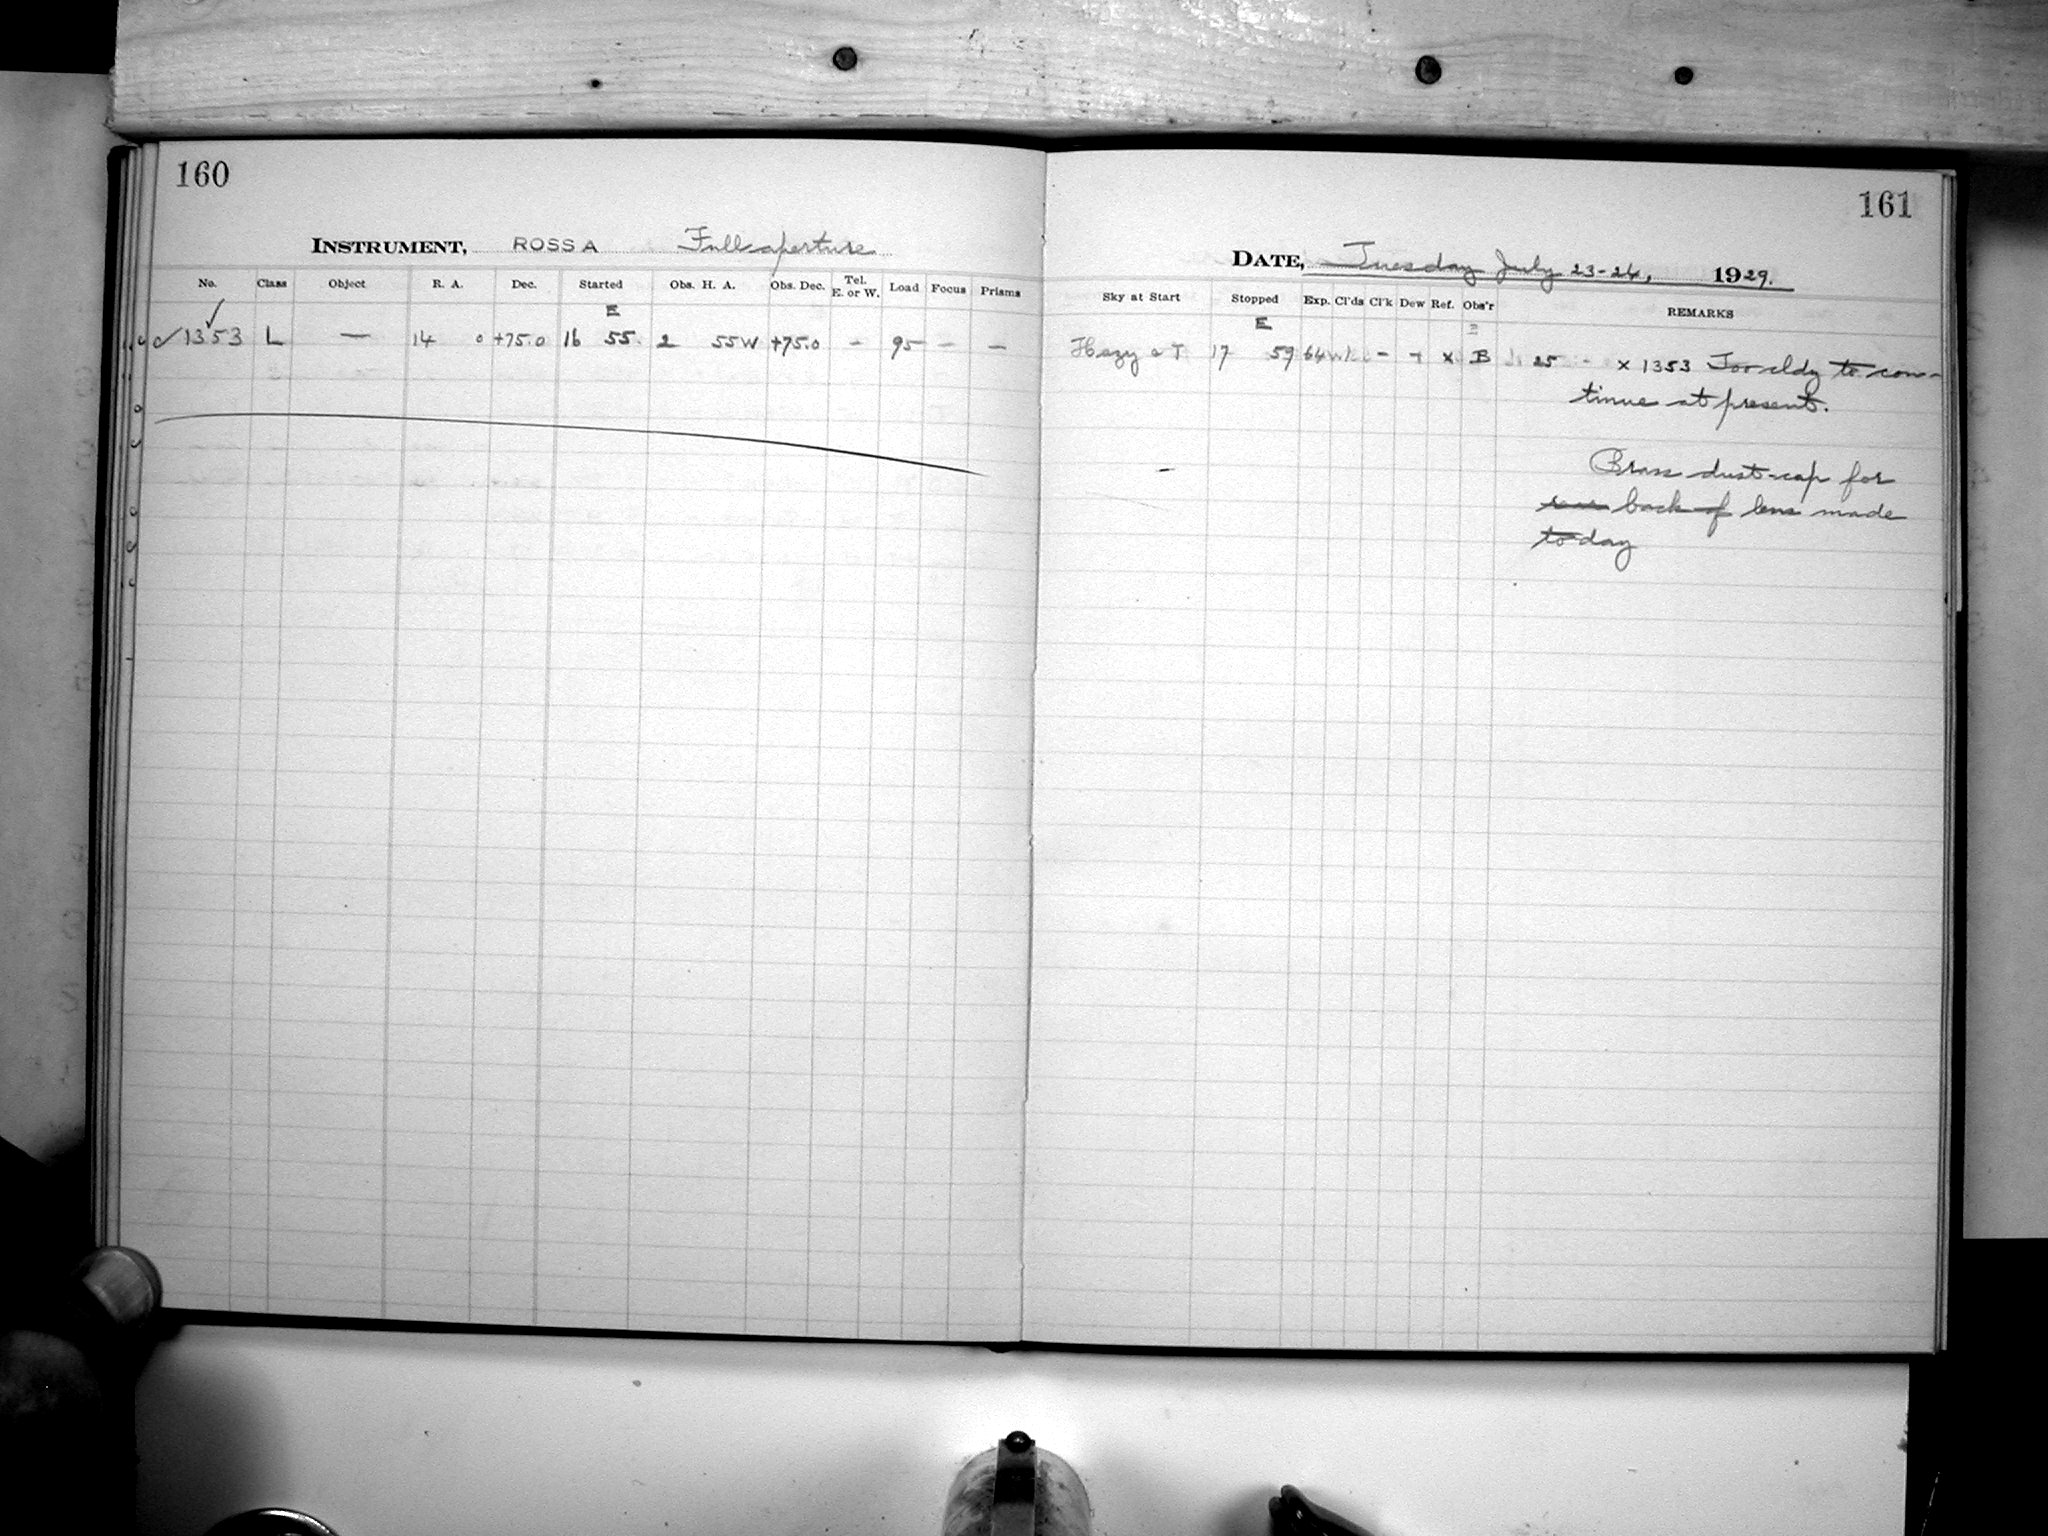 160
INSTRUMENT, ROSS A Full aperture
No. Class Object R. A. Dec. Started Obs. H. A. Obs. Dec. Tel. E. or W. Load Focus Prisms
E
✓1353 L — 14 0 +75.0 16 55 2 55W +75.0 - 95 - -
161
DATE, Tuesday July 23-24, 1929.
Sky at Start Stopped Exp. Cl'ds Cl'k Dew Ref. Obs'r REMARKS
E
Hazy 17 59 64 - x B 25 x 1353 Too cldy to con-
tinue at present.
Brass dust-cap for
rear back of lens made
to day